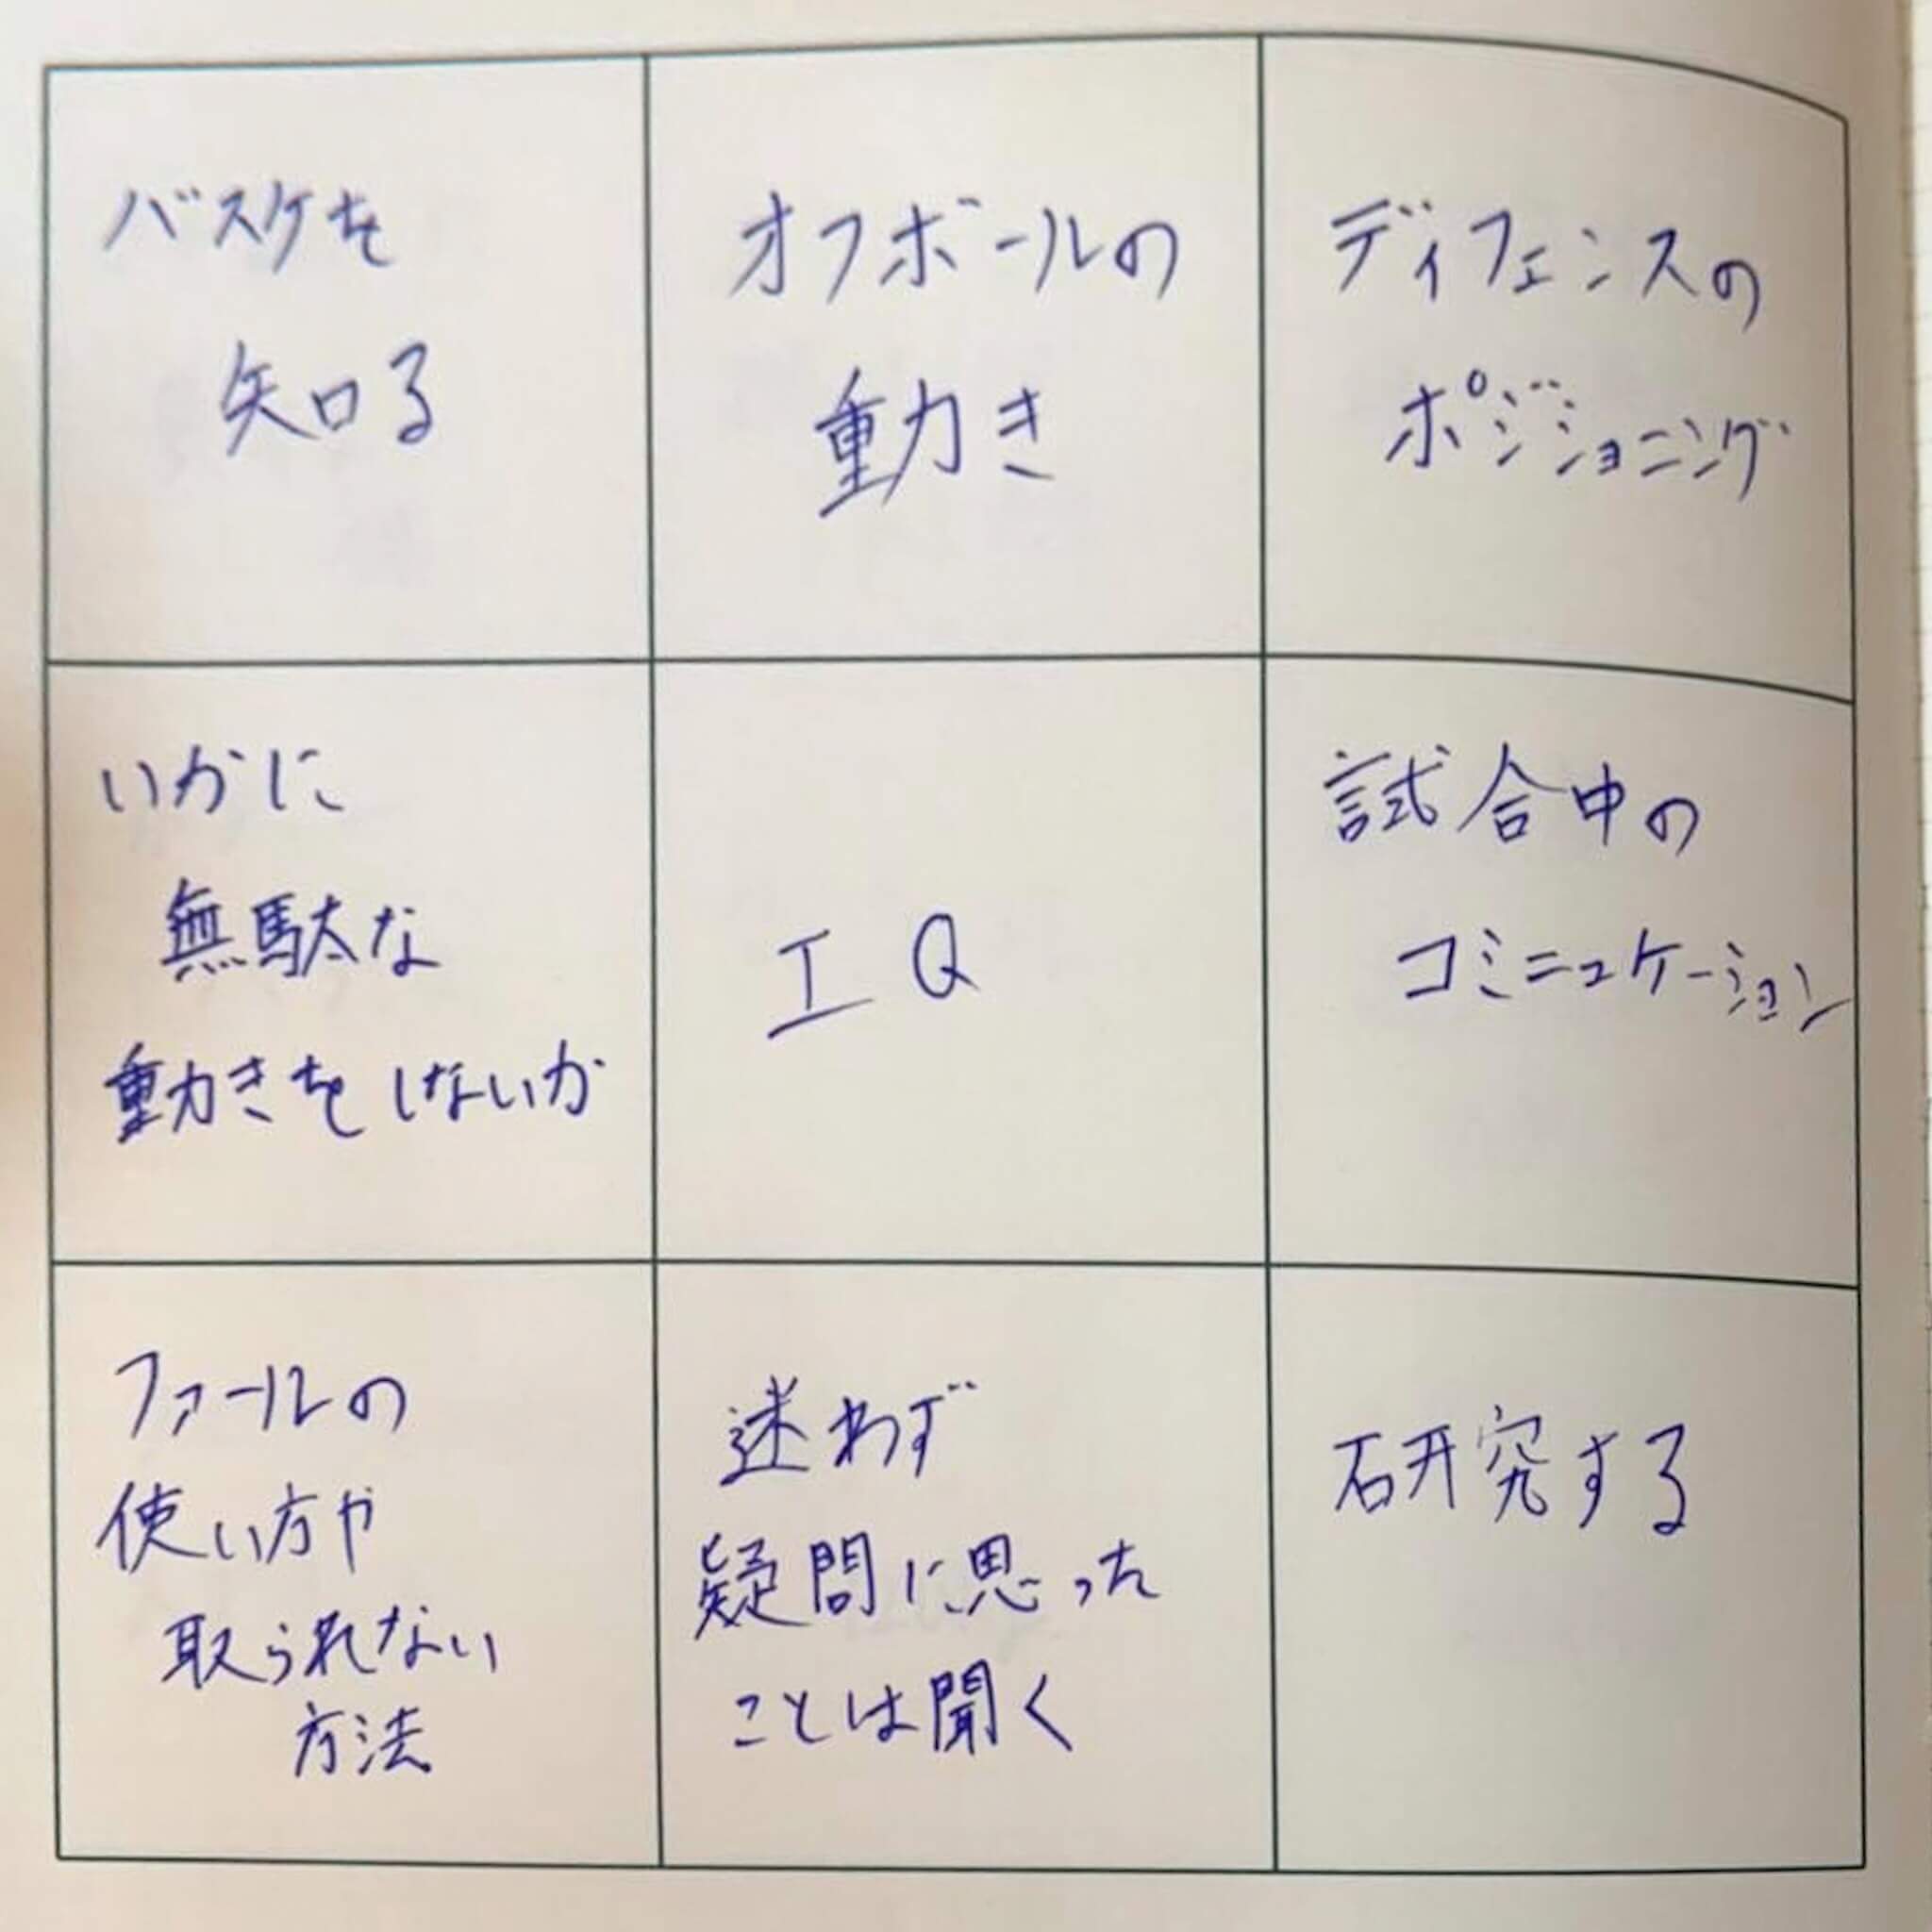 バスケを
知る
オフボールの
動き
ディフェンスの
ポジショニング
いかに
無駄な
動きをしないか
IQ
試合中の
コミニュケーション
ファールの
使い方や
取られない
方法
迷わず
疑問に思った
ことは聞く
研究する